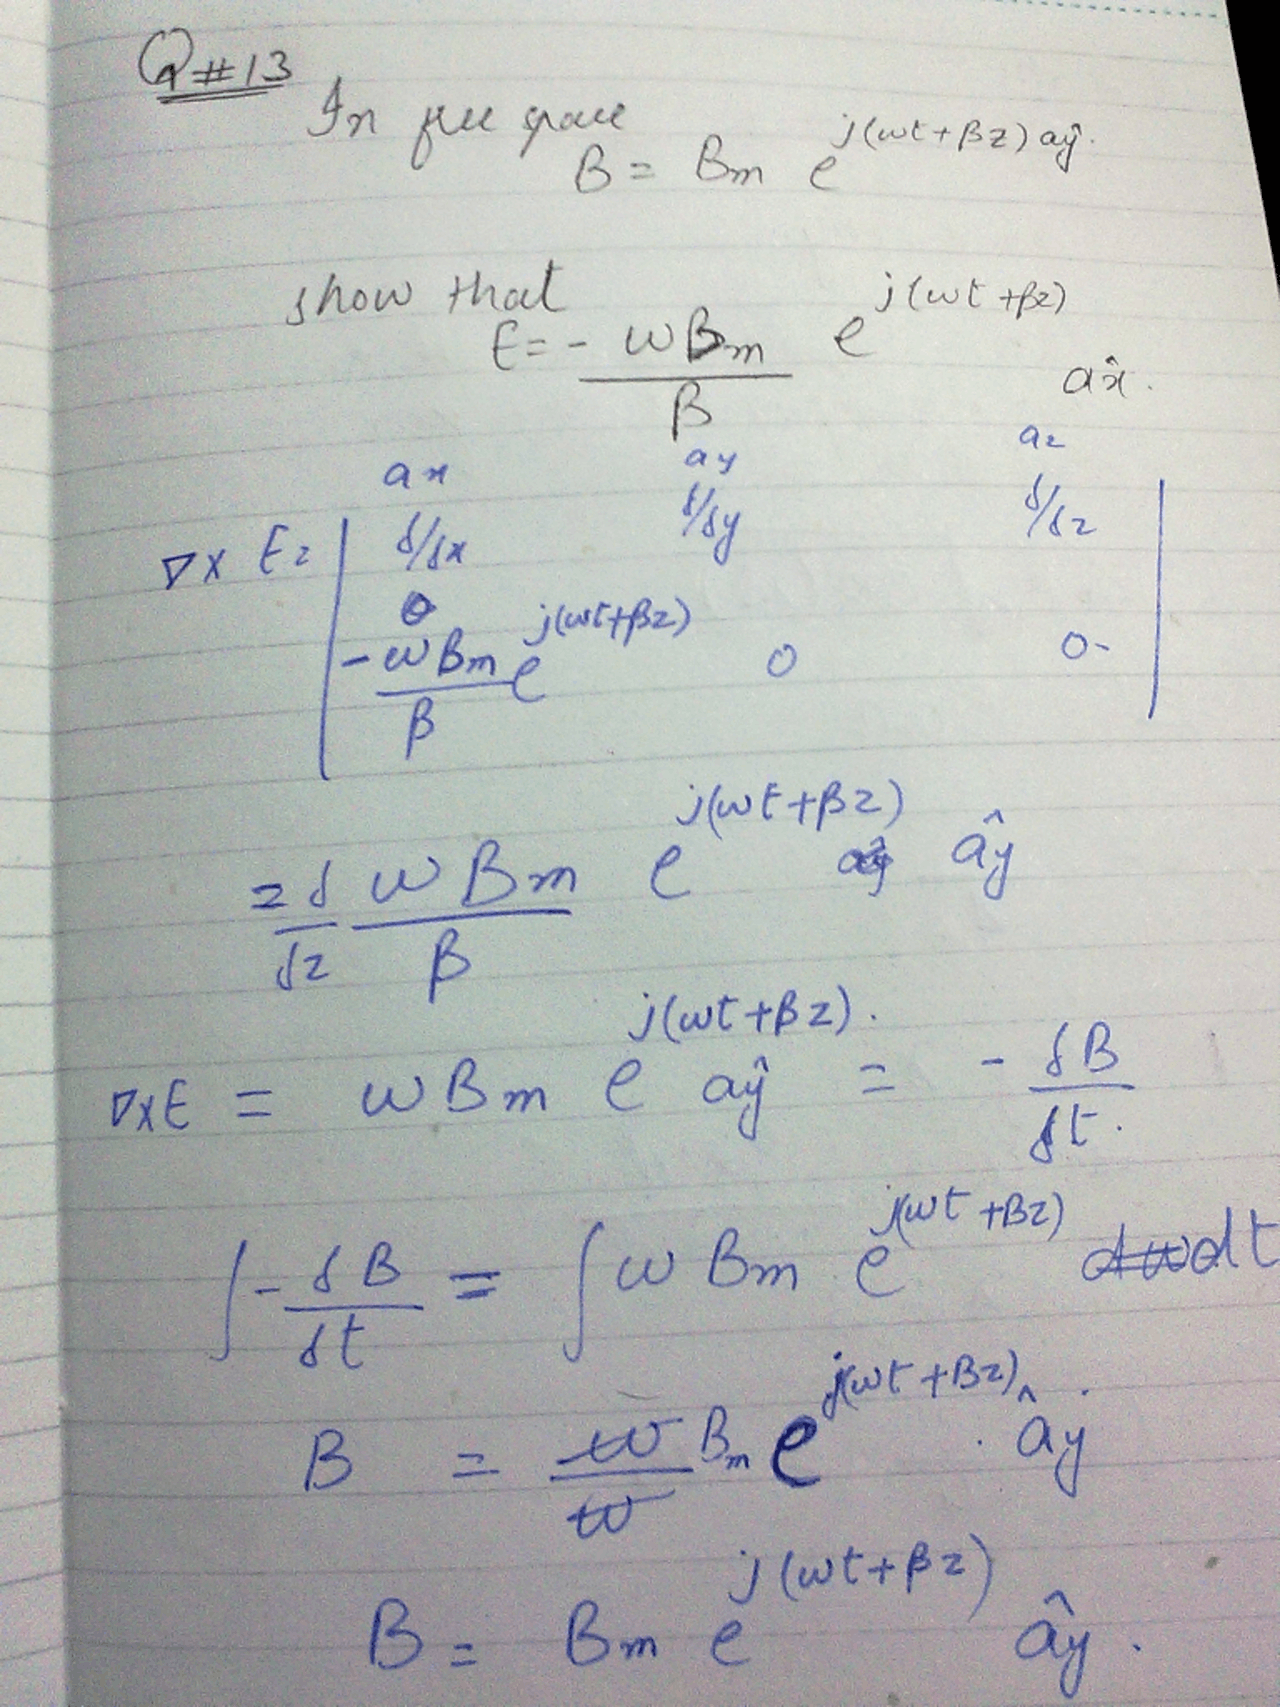 Q#13
In free space
B = Bm e^{j(ωt+βz)} aŷ.
show that
E = - ωBm/β e^{j(ωt+βz)} ax̂.
ax ay az
∇x E = | δ/δx δ/δy δ/δz |
-ωBm/β e^{j(ωt+βz)} 0 0-
= δ/δz ωBm/β e^{j(ωt+βz)} ây
∇xE = ωBm e^{j(ωt+βz)}. aŷ = - δB/δt.
∫ - δB/δt = ∫ ω Bm e^{j(ωt+βz)} dt
B = ω/ω Bm e^{j(ωt+βz)} . ây.
B = Bm e^{j(ωt+βz)} ây.